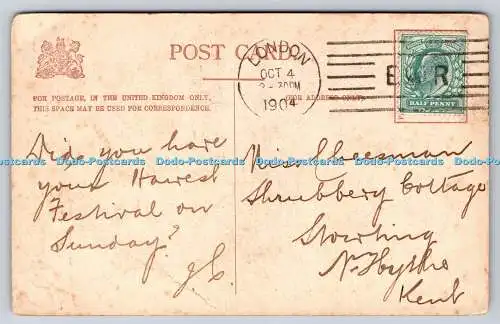 POST CARD
LONDON
OCT 4
1904
E R
HALF PENNY
FOR POSTAGE, IN THE UNITED KINGDOM ONLY,
THIS SPACE MAY BE USED FOR CORRESPONDENCE.
(FOR ADDRESS ONLY.)
Did you have
your Harvest
Festival on
Sunday?
Miss Cheesman
Shrubbery Cottage
Stowting
N. Hythe
Kent
Dodo-Postcards Dodo-Postcards Dodo-Postcards Dodo-Postcards Dodo-Postcards